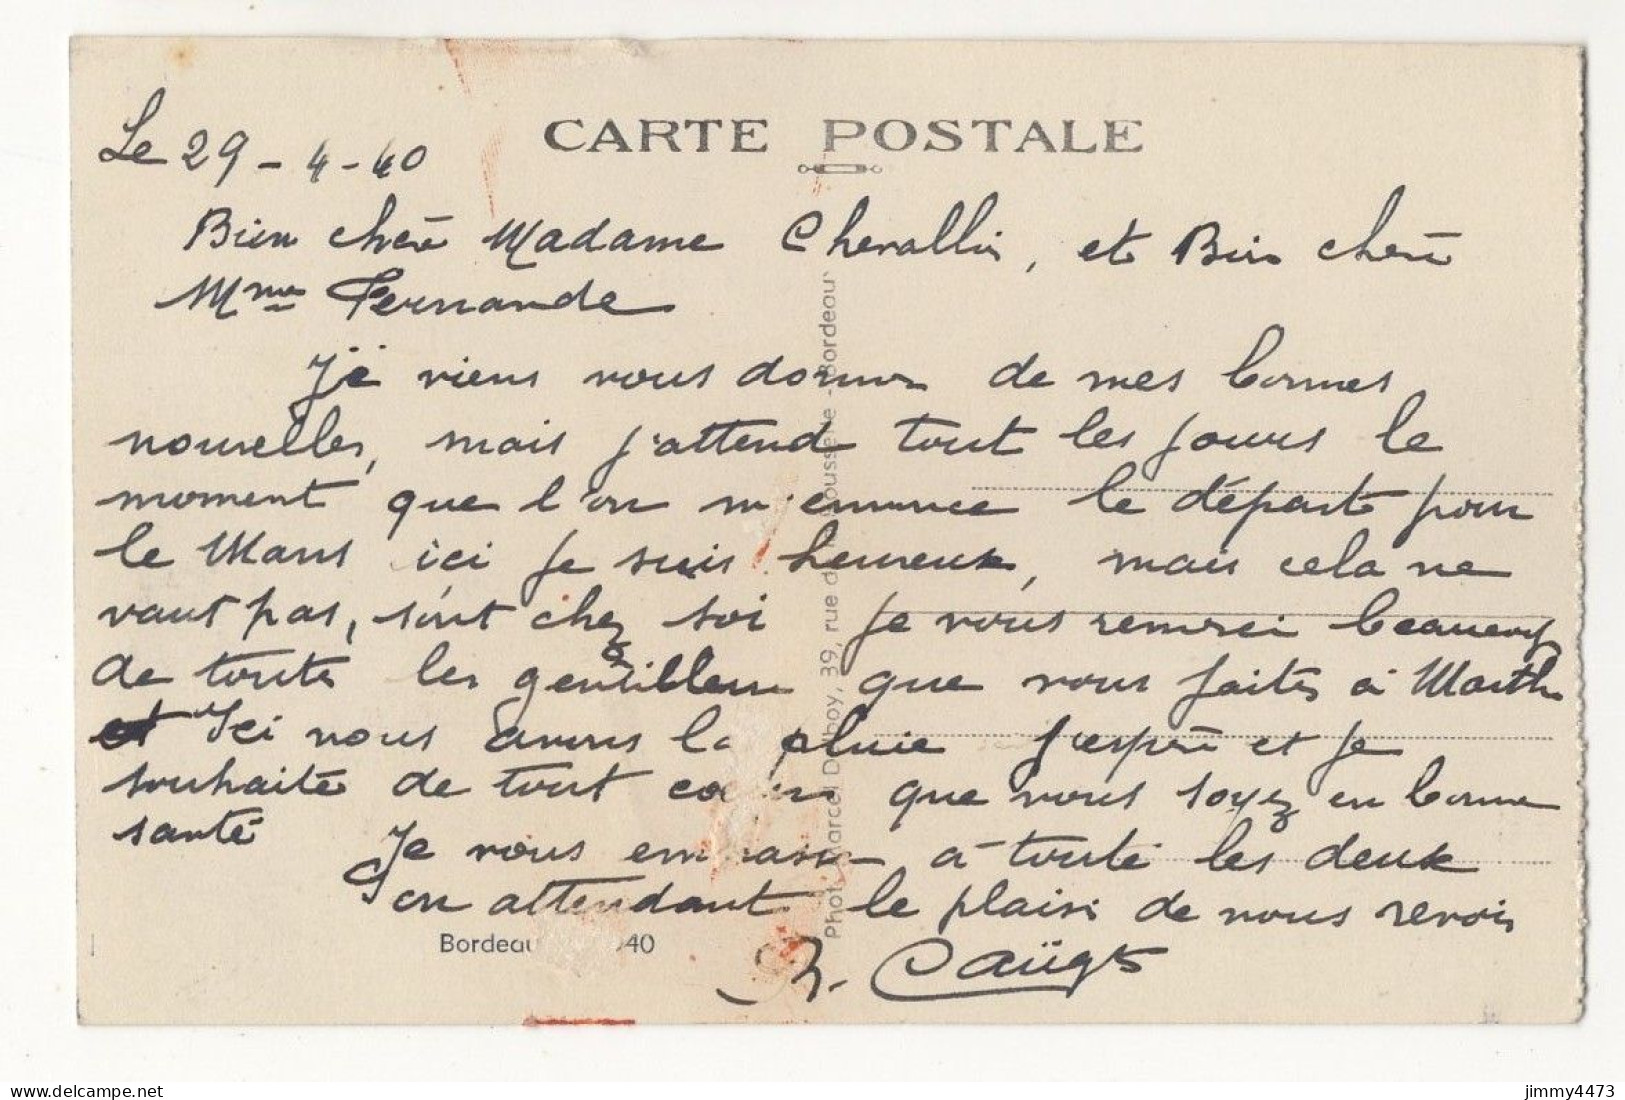 CARTE POSTALE
Le 29-4-40
Bien cherè Madame Chevallin, et Bien cherè
Mme Fernande
Je viens vous donner de mes bonnes
nouvelles, mais j'attend tout les jours le
moment que l'on m'ennonce le départ pour
le Mans ici je suis heureux, mais cela ne
vaut pas, sont chez soi je vous remerci beaucoup
de toute les gentillesse que vous faites à Marthe
Ici nous avons la pluie j'espère et je
souhaite de tout coeur que vous soyez en bonne
santé
Je vous embrasse à toute les deux
en attendant le plaisir de vous revoir
R.
Phot. Marcel Delboy, 39, rue de - Bordeaux
Bordeau 40
jimmy4473
delcampe.net